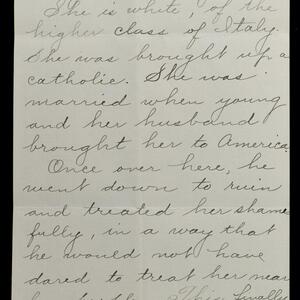 She is white, of the
higher class of Italy.
She was brought up a
catholic. She was
married when young
and her husband
brought her to America.
Once over here, he
went down to ruin
and treated her shame-
fully, in a way that
he would not have
dared to treat her near
This finally